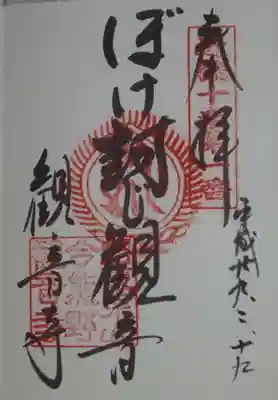 奉拝
平成廿九、十九
ぼけ封じ観音
観音寺
今熊野